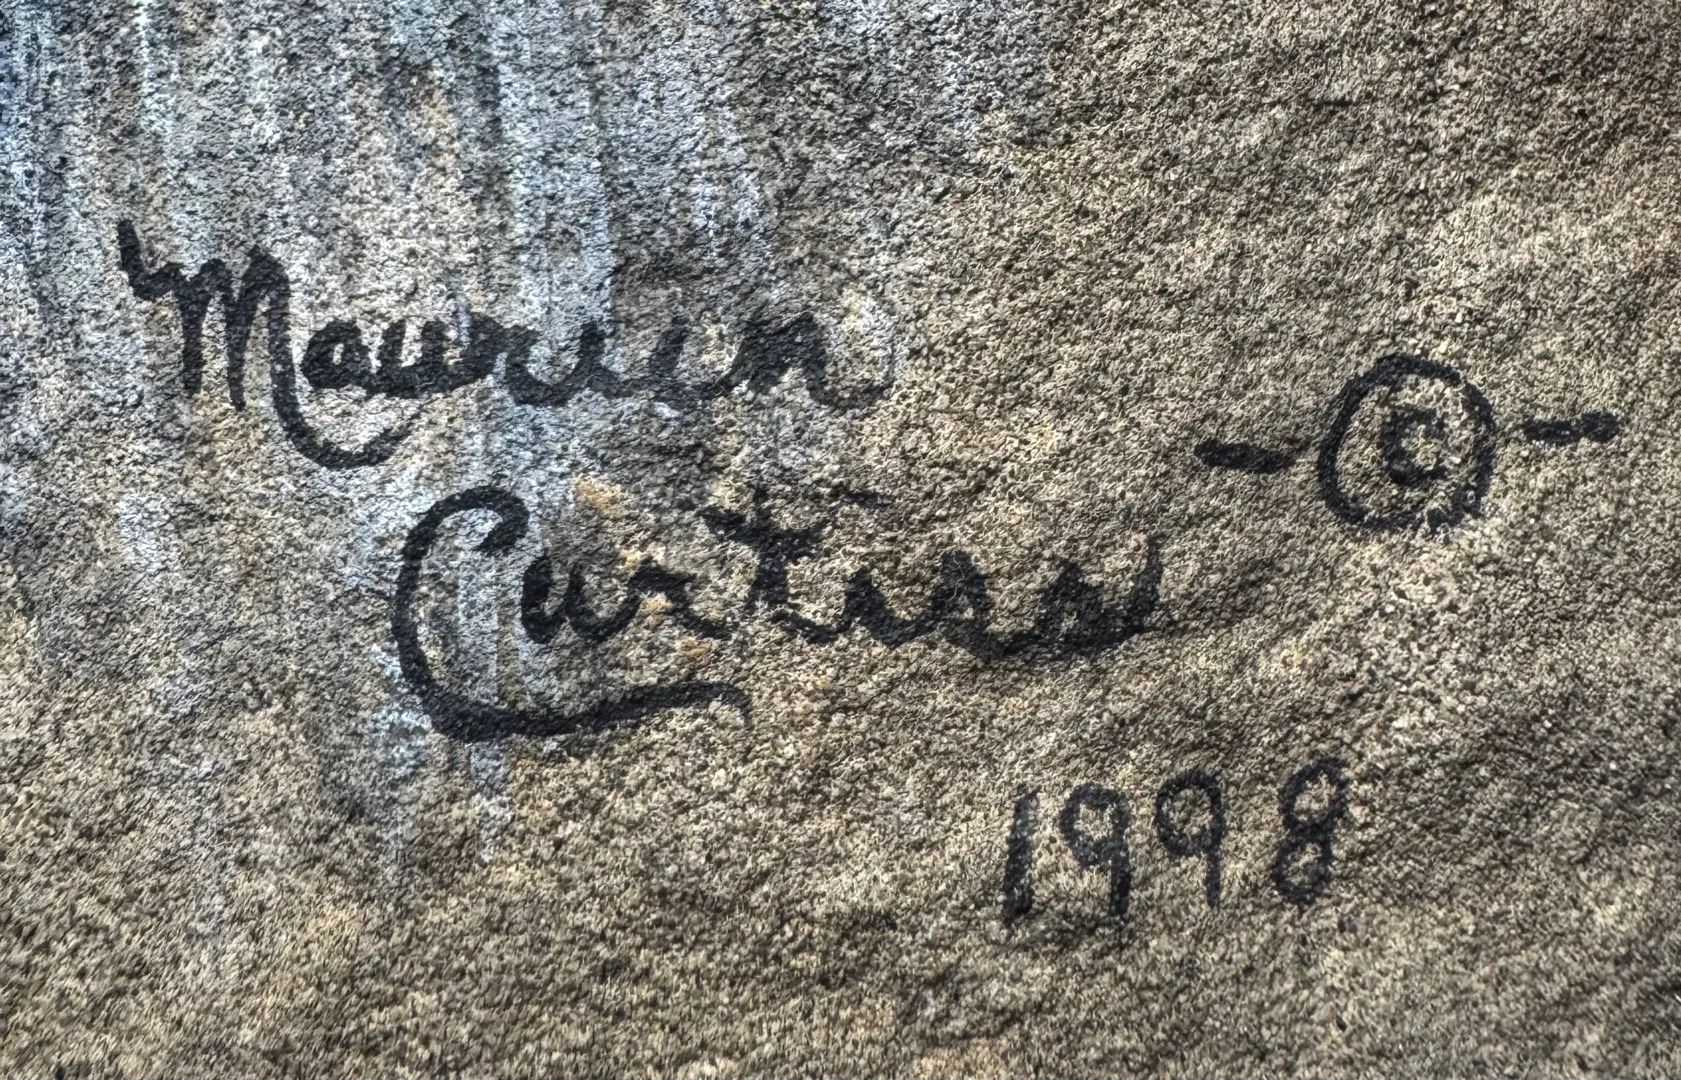 Maureen
Curtiss
-©-
1998